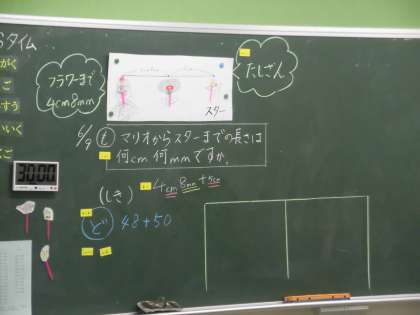 タイム
がく
ご
すう
いく
ご
フラワーまで
4cm8mm
スター
たしざん
6/9 も マリオからスターまでの長さは
何cm 何mmですか。
30:00
(しき) 4cm8mm+5cm
ど 48+50